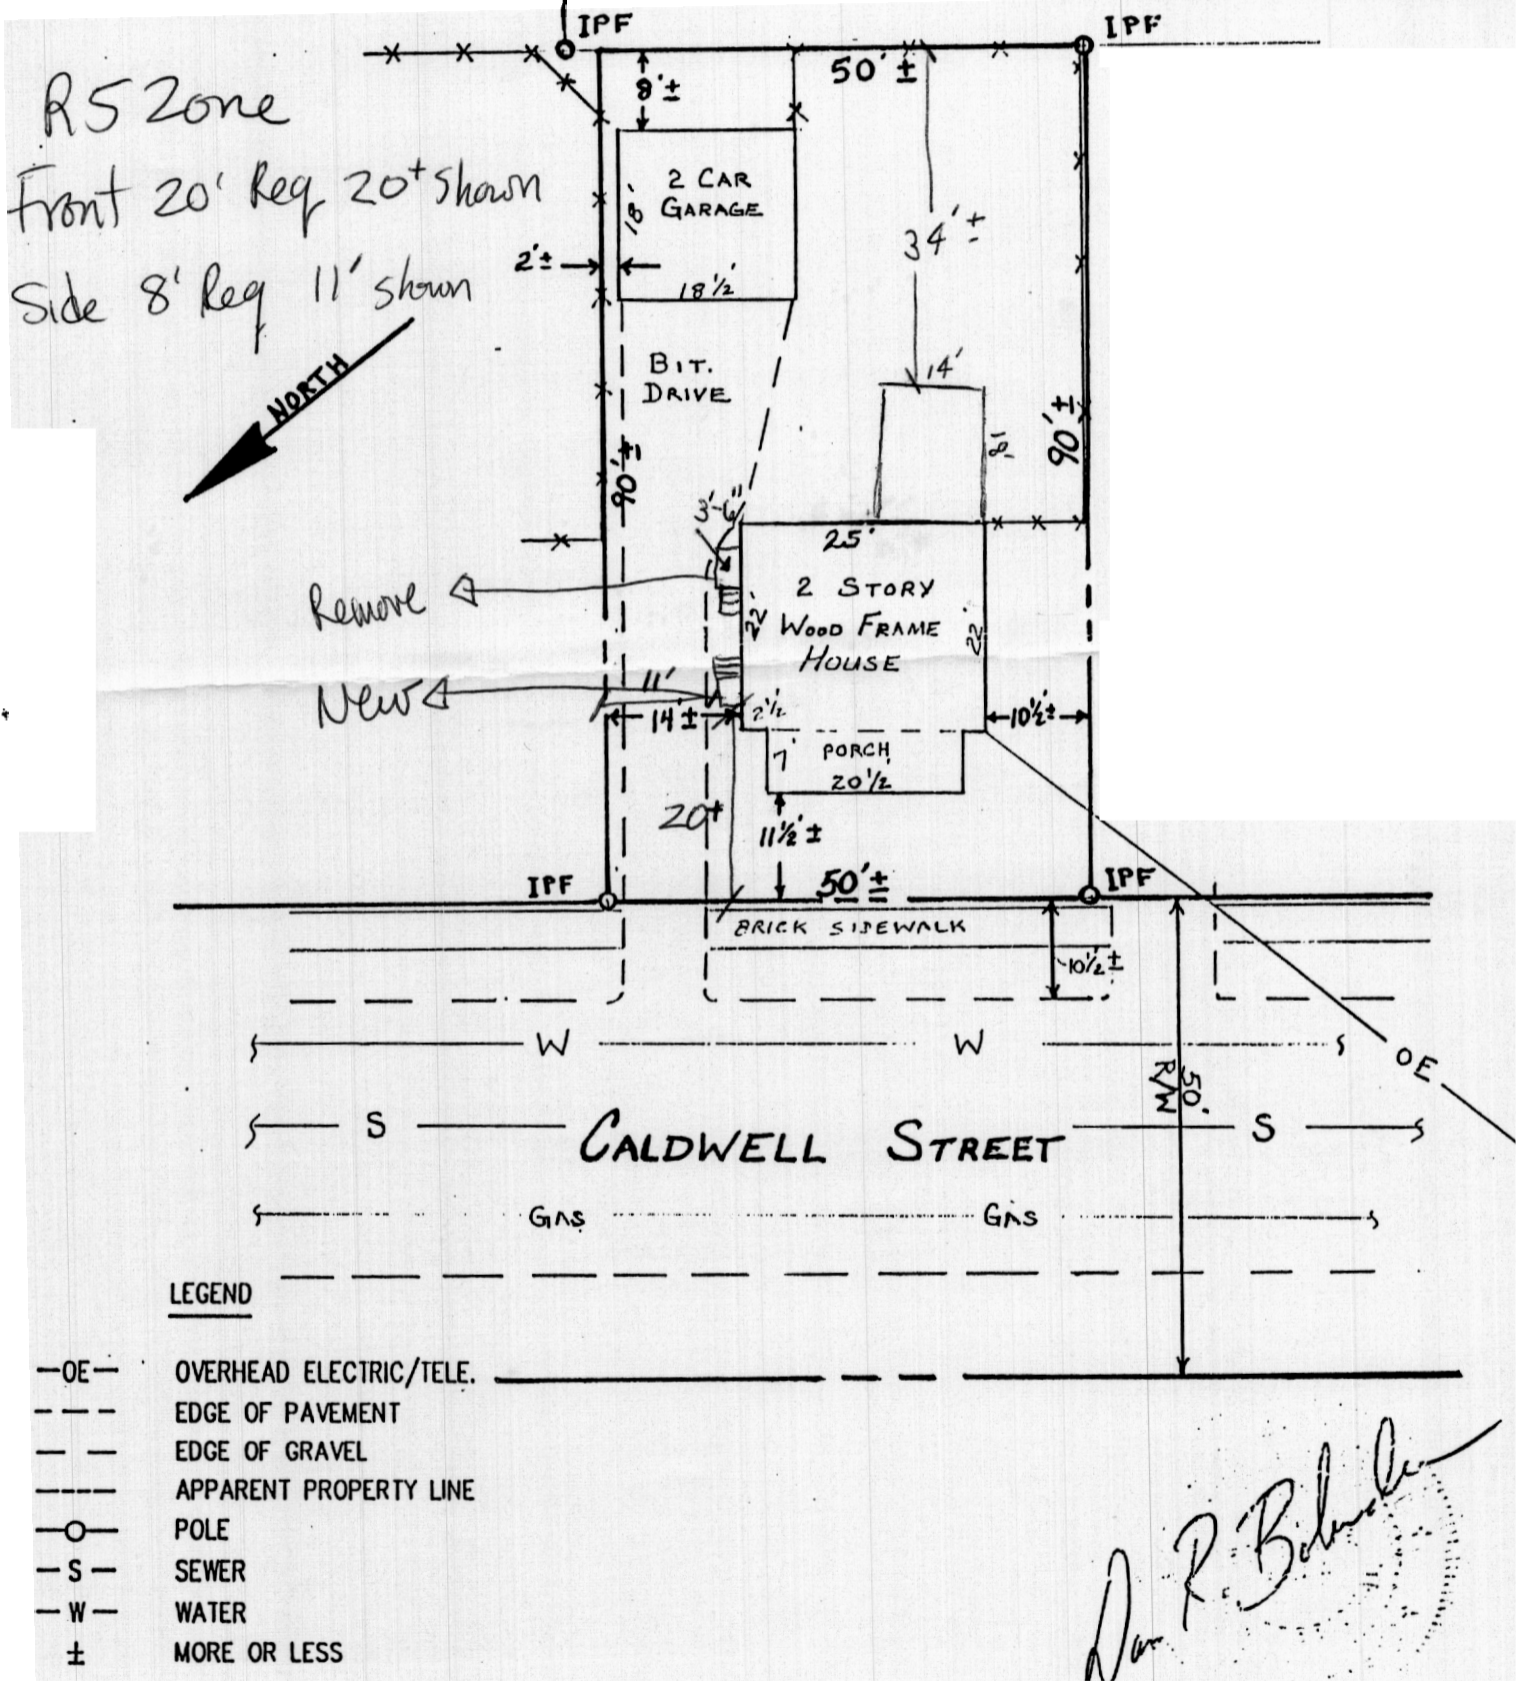 IPF
IPF
50'±
8'±
R5 Zone
Front 20' Req 20+ Shown
Side 8' Req 11' shown
2 CAR
GARAGE
18'
18½'
2'±
34'±
NORTH
BIT.
DRIVE
14'
18'
90'±
90'±
3'-6"
25'
2 STORY
WOOD FRAME
HOUSE
22'
22'
Remove
New
11'
14'±
2½'
10½'±
7'
PORCH
20½'
20+
11½'±
IPF
50'±
IPF
BRICK SIDEWALK
10½'±
W
W
OE
50'
R/W
S
CALDWELL STREET
S
GAS
GAS
LEGEND
—OE— OVERHEAD ELECTRIC/TELE.
EDGE OF PAVEMENT
EDGE OF GRAVEL
APPARENT PROPERTY LINE
POLE
—S— SEWER
—W— WATER
± MORE OR LESS
R.